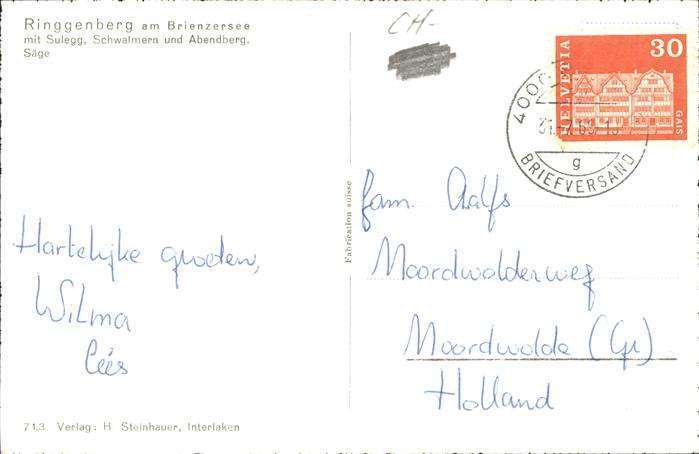 Ringgenberg am Brienzersee
mit Sulegg, Schwalmern und Abendberg.
Säge
CH-
HELVETIA
30
GAIS
4000
g
BRIEFVERSAND
Fabrication suisse
Hartelijke groeten,
Wilma
Cees
fam. Aalfs
Noordwolderweg
Noordwolde (Gr)
Holland
713 Verlag: H Steinhauer, Interlaken